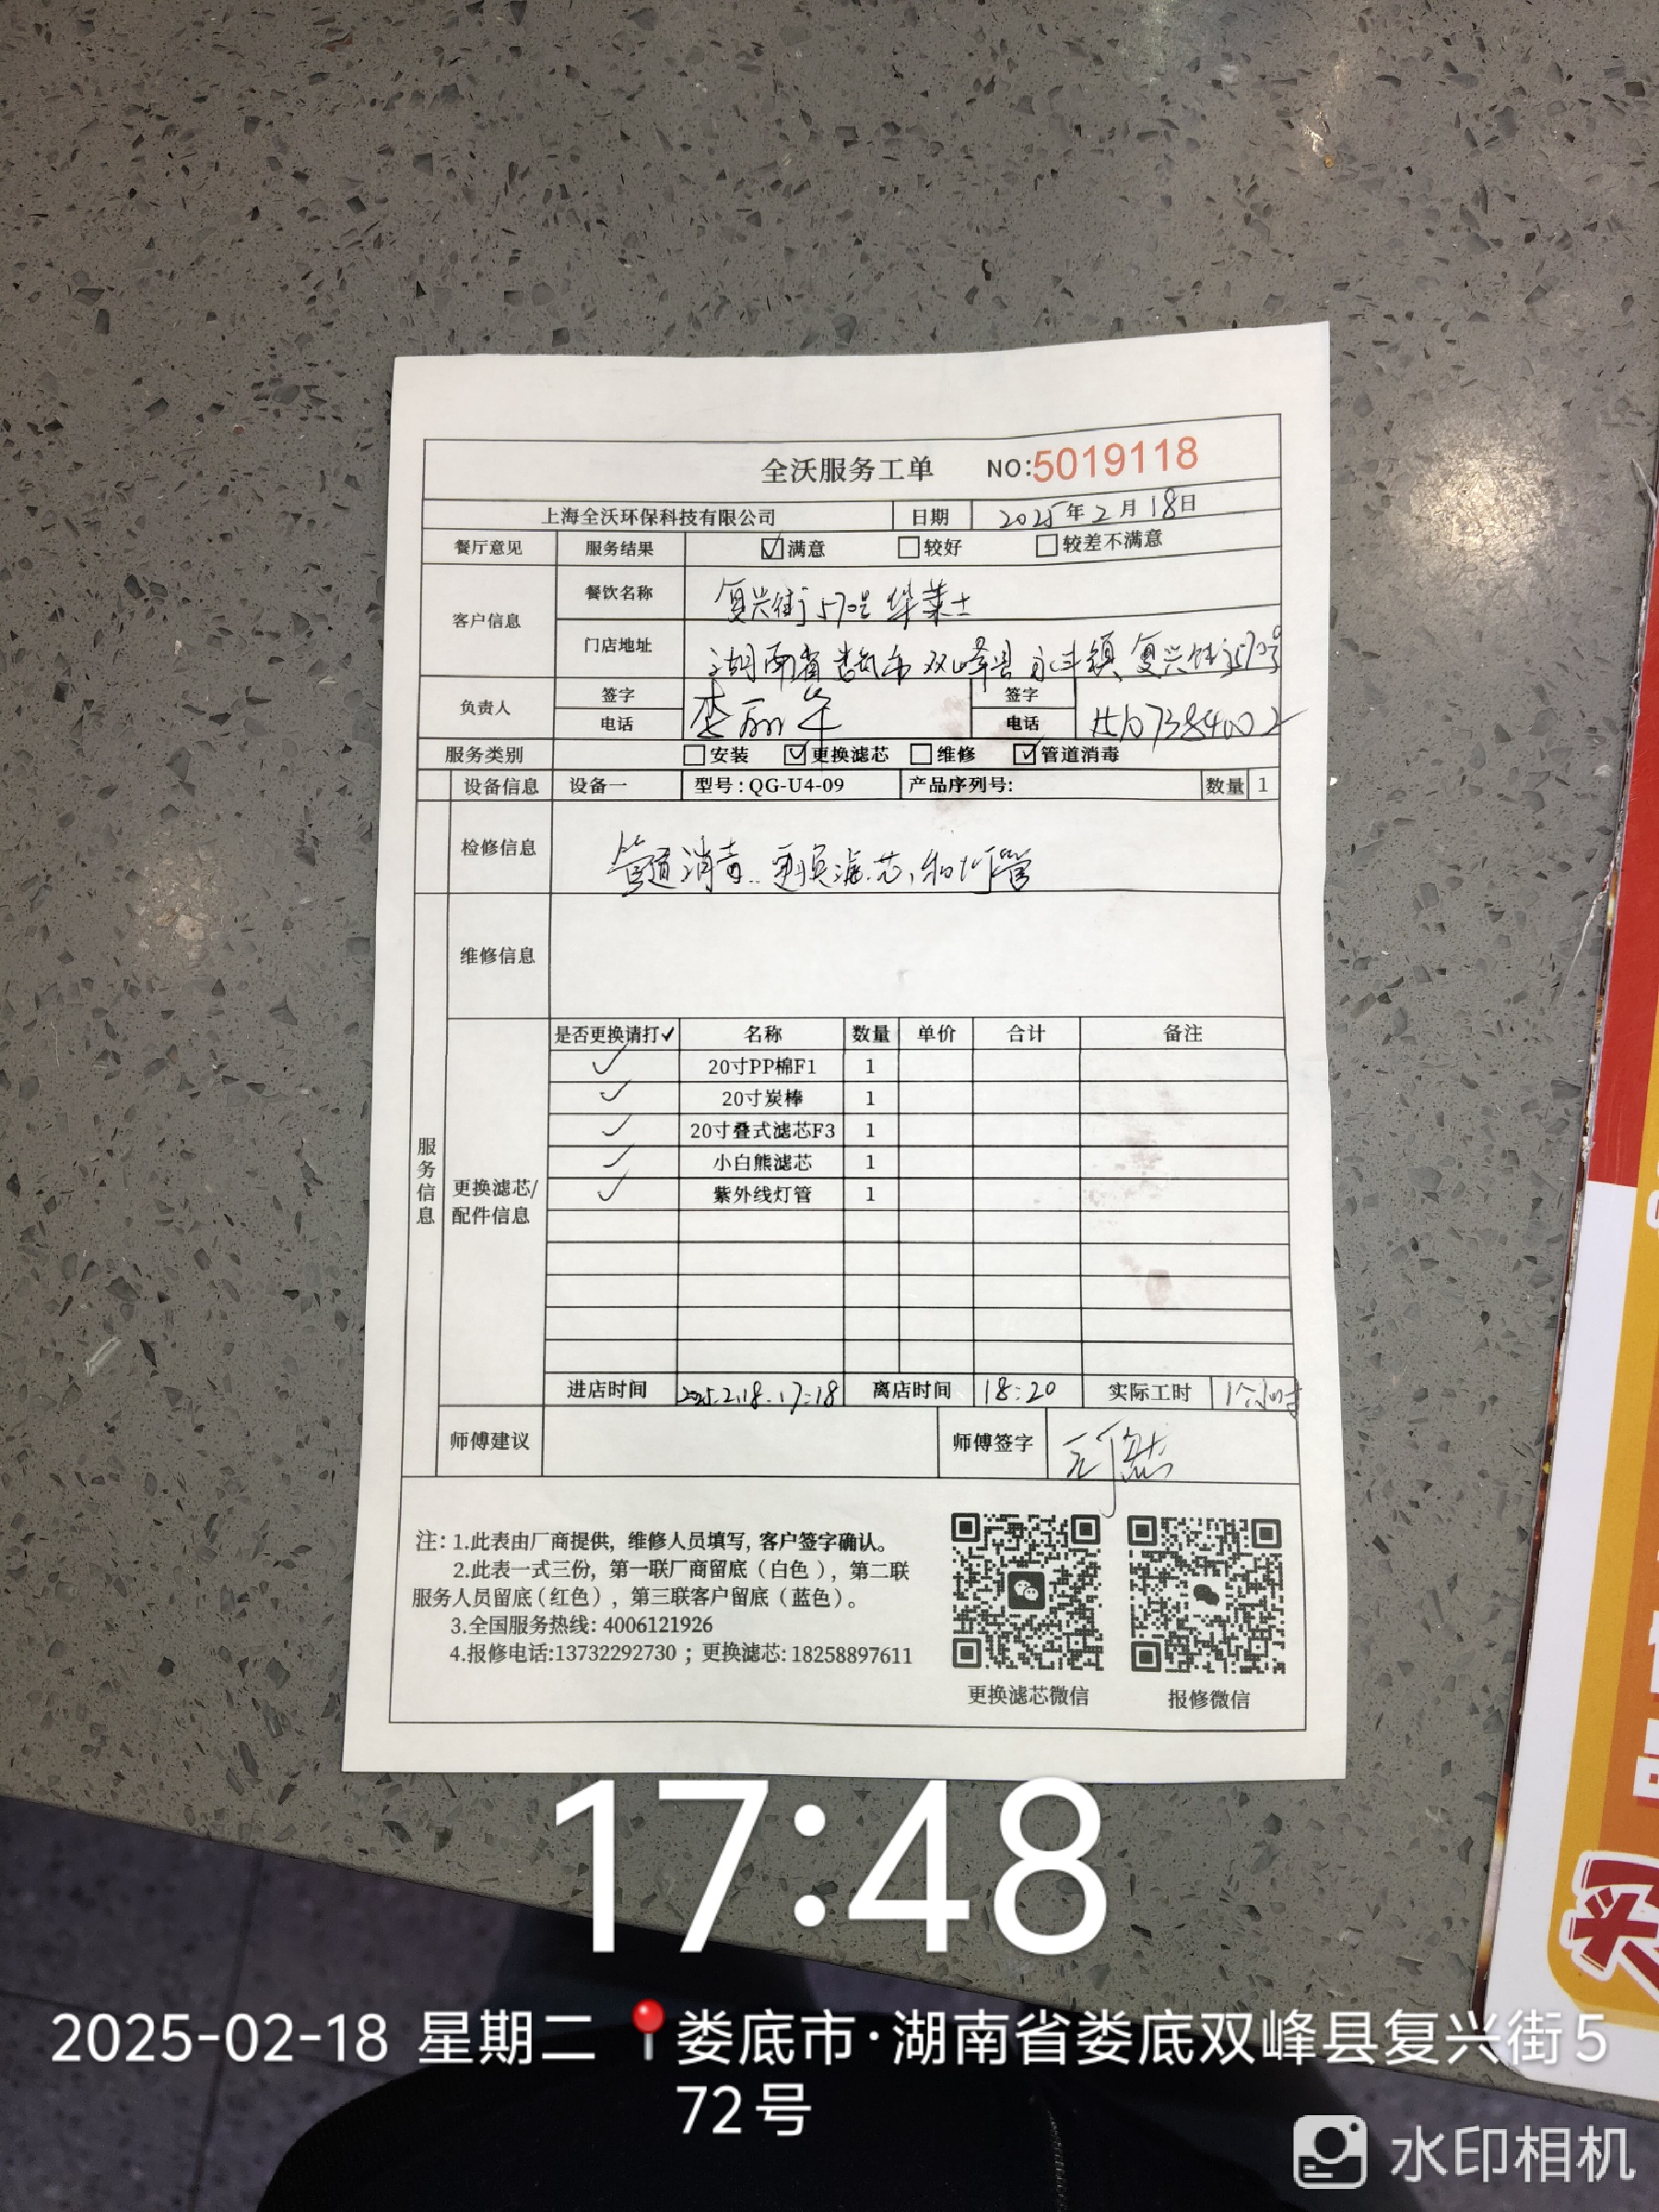 全沃服务工单 NO:5019118
上海全沃环保科技有限公司 日期 2025年2月18日
餐厅意见 服务结果 ☑满意 □较好 □较差不满意
客户信息 餐饮名称 复兴街570号 华莱士
门店地址 湖南省娄底市双峰县永丰镇复兴街570号
负责人 签字 签字
电话 李丽 电话 07384002
服务类别 □安装 ☑更换滤芯 □维修 ☑管道消毒
设备信息 设备一 型号:QG-U4-09 产品序列号: 数量 1
检修信息 管道消毒..更换滤芯,和灯管
维修信息
服务信息
更换滤芯/
配件信息
是否更换请打✓ 名称 数量 单价 合计 备注
✓ 20寸PP棉F1 1
✓ 20寸炭棒 1
✓ 20寸叠式滤芯F3 1
✓ 小白熊滤芯 1
✓ 紫外线灯管 1
进店时间 2025.2.18.17:18 离店时间 18:20 实际工时 1个小时
师傅建议 师傅签字
注: 1.此表由厂商提供, 维修人员填写, 客户签字确认。
2.此表一式三份, 第一联厂商留底(白色), 第二联
服务人员留底(红色), 第三联客户留底(蓝色)。
3.全国服务热线: 4006121926
4.报修电话:13732292730 ; 更换滤芯: 18258897611
更换滤芯微信 报修微信
17:48
2025-02-18 星期二 娄底市·湖南省娄底双峰县复兴街5
72号
水印相机
买